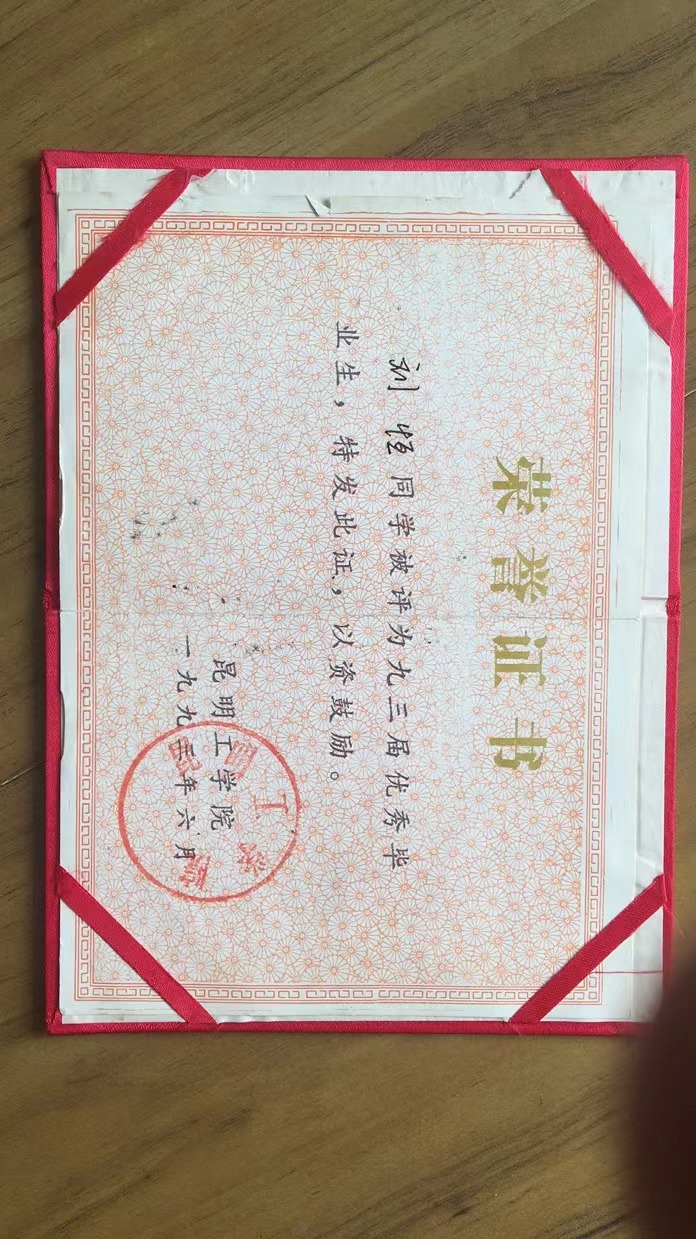 荣誉证书
刘恒同学被评为九三届优秀毕
业生，特发此证，以资鼓励。
昆明工学院
一九九三年六月
昆明工学院